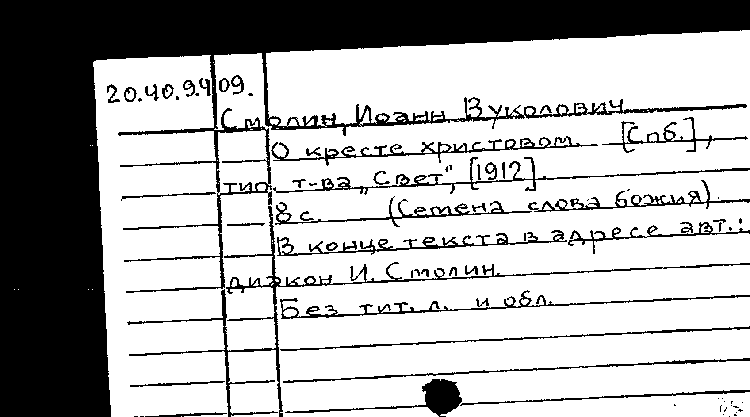 20.40.9.409.
Смолин, Иоанн Вуколович
О кресте христовом. [Спб.],
тип. т-ва „Свет", [1912].
8 с. (Семена слова божия)
В конце текста в адресе авт.:
диакон И. Смолин.
Без тит. л. и обл.